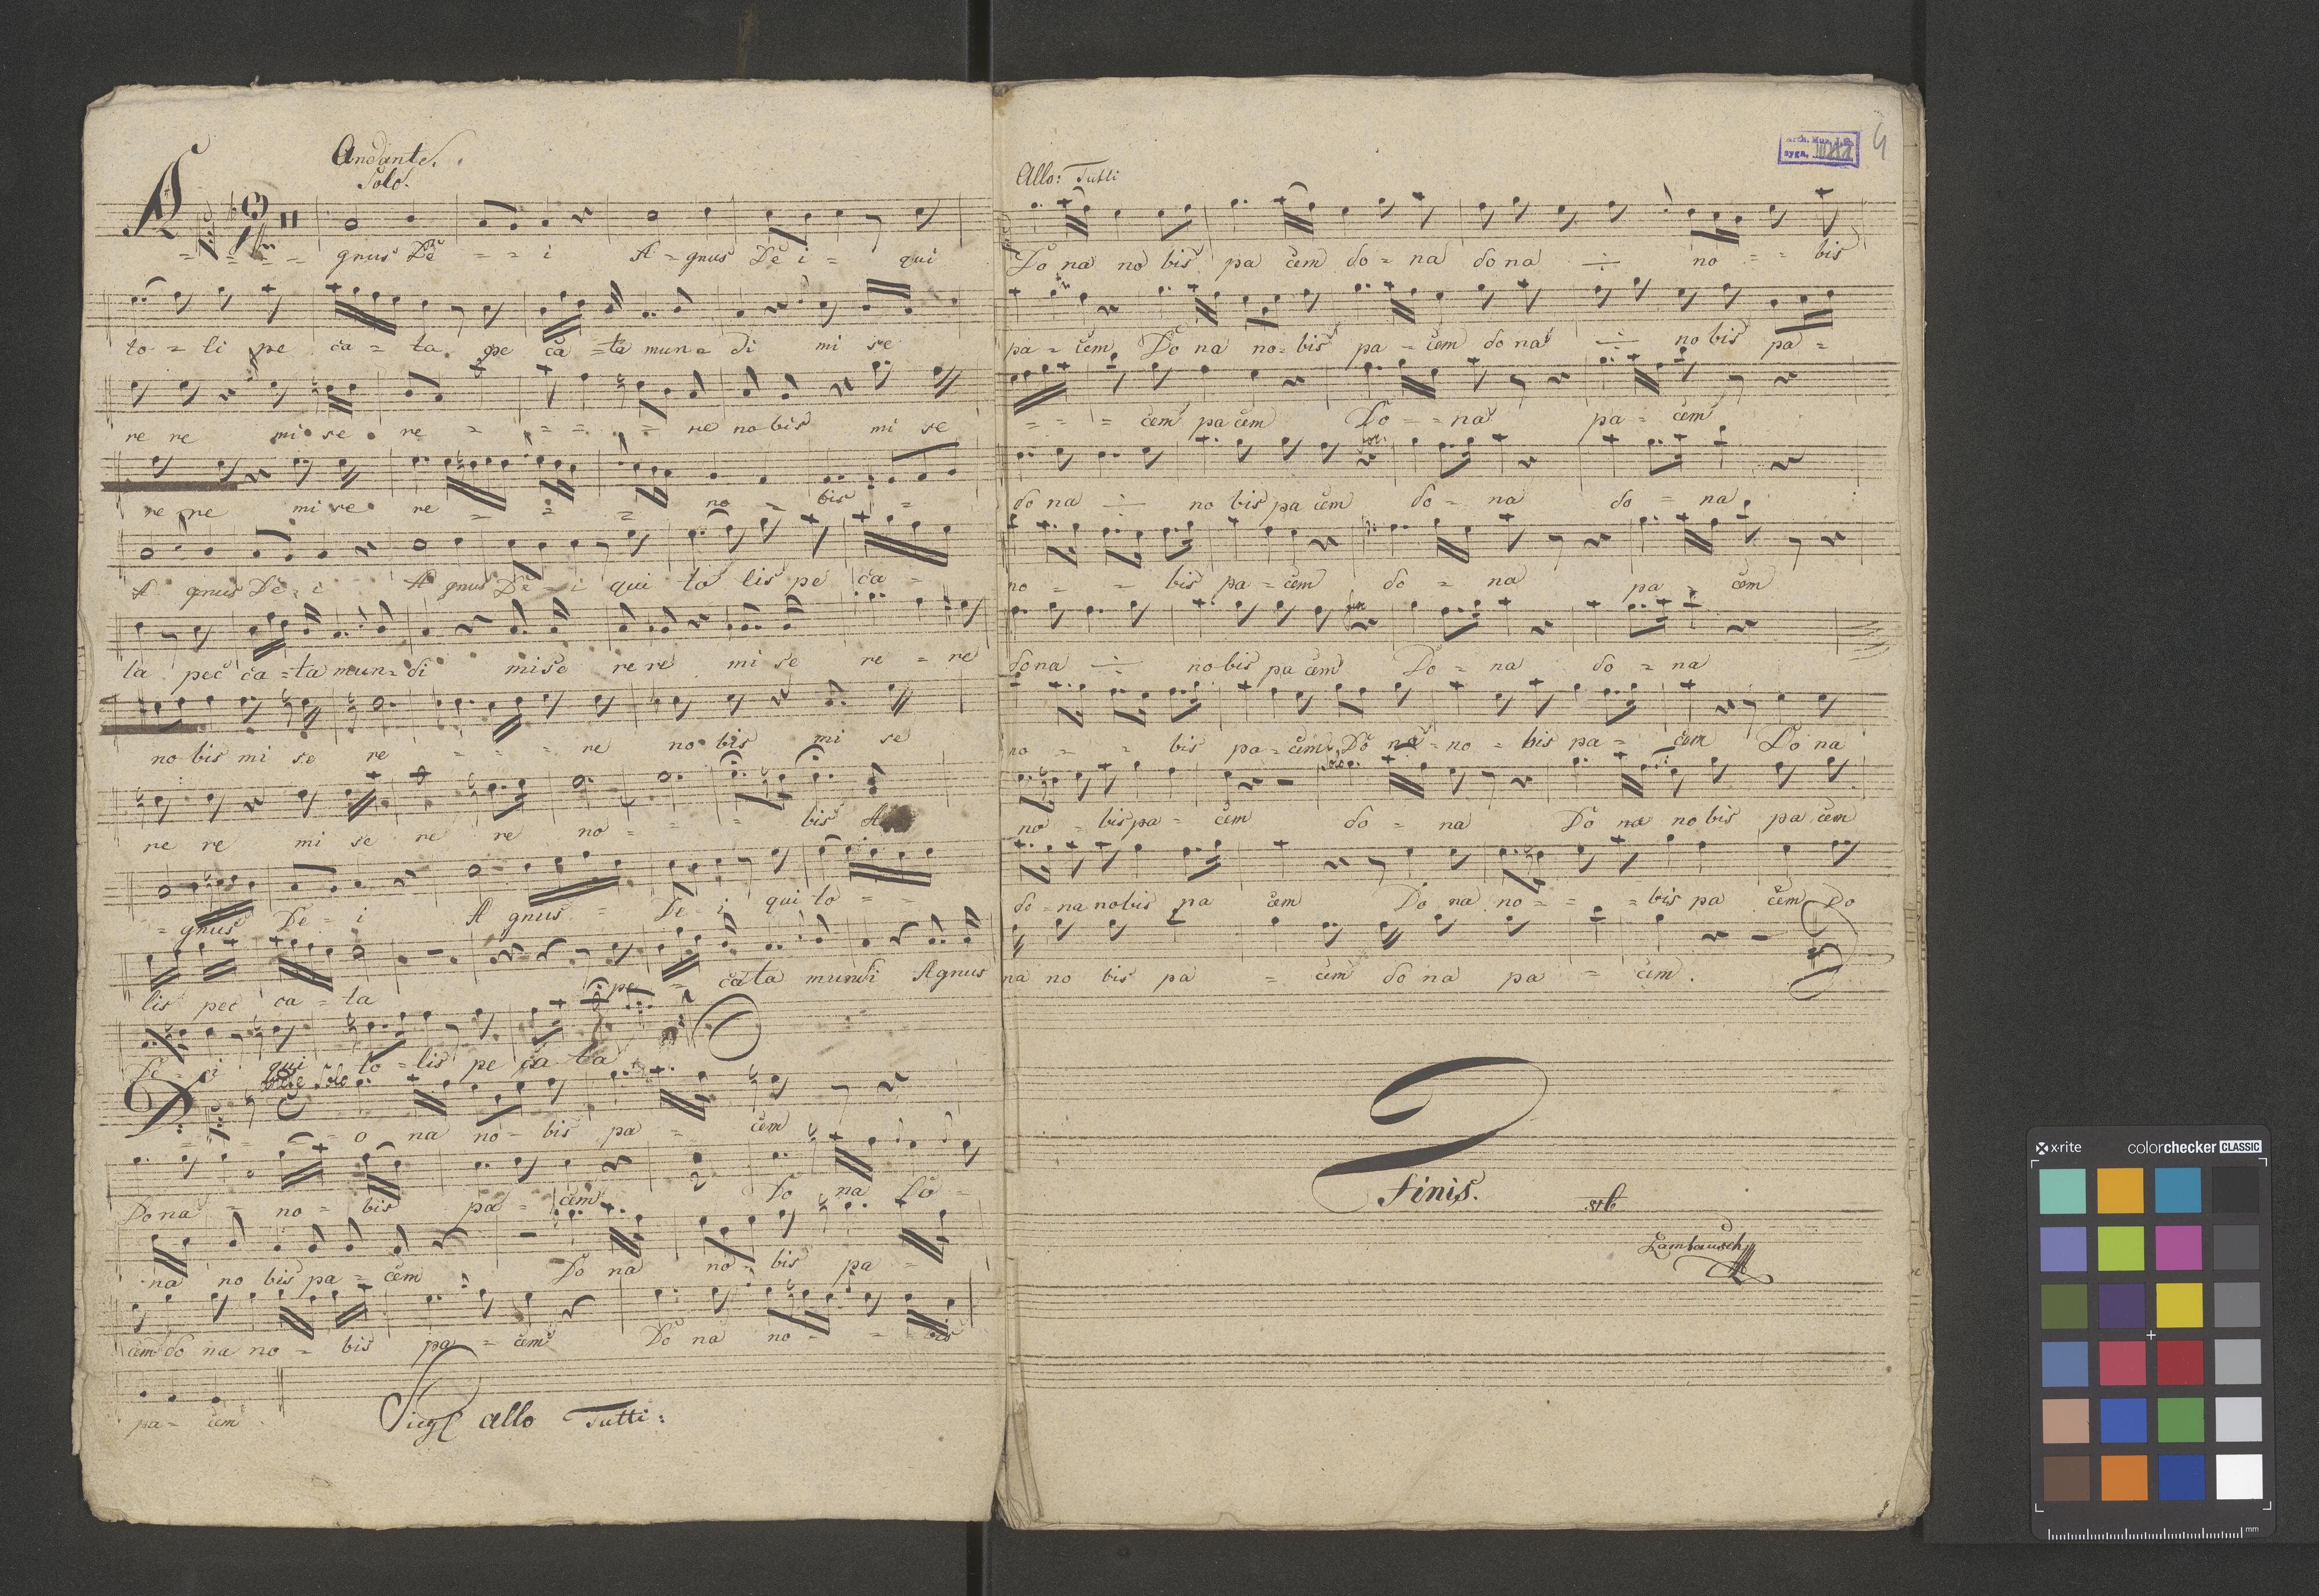 Andante.
Solo.
A = = = = gnus De = = i A = gnus De i = qui
to = li pe ca = ta pe ca = ta mun = di mi se
re re mi se re = = = = re no bis mi se
re re mi se re = = = no = bis =
A gnus De = i A gnus De = i qui to lis pe ca =
ta pec ca = ta mun = di mi se re re mi se re = re
no bis mi se re = = = re no bis mi se
re re mi se re re no = = = bis A
= gnus De = i A gnus = De = i qui to = =
lis pec ca = ta pe = ca ta mundi Agnus
De = ei qui to = lis pe ca ta
Solo
D = = = = o na no = bis pa = cem
Do na = no = bis pa = cem Do na Do =
na no bis pa = cem Do na no = bis pa =
cem do na no = bis pa = cem Do na no = = bis
pa = cem
allo Tutti:
4
Allo: Tutti
Do na no bis pa cem do = na do na ÷ no = = bis
pa = cem Do na no = bis pa = cem do na ÷ no bis pa =
= = = cem pa cem Do = = na pa = cem
do na ÷ no bis pa cem do = na do = na
no = = bis pa = cem do = na pa = cem
do na ÷ no bis pa cem Do = na do = na
no = = bis pa = cem Do na = no = bis pa = cem Do na
no = bis pa = cem do = na Do na no bis pa cem
do = na no bis pa cem Do na no = = = bis pa cem Do
na no bis pa = cem do na pa = cem.
Finis.
x·rite colorchecker CLASSIC
mm